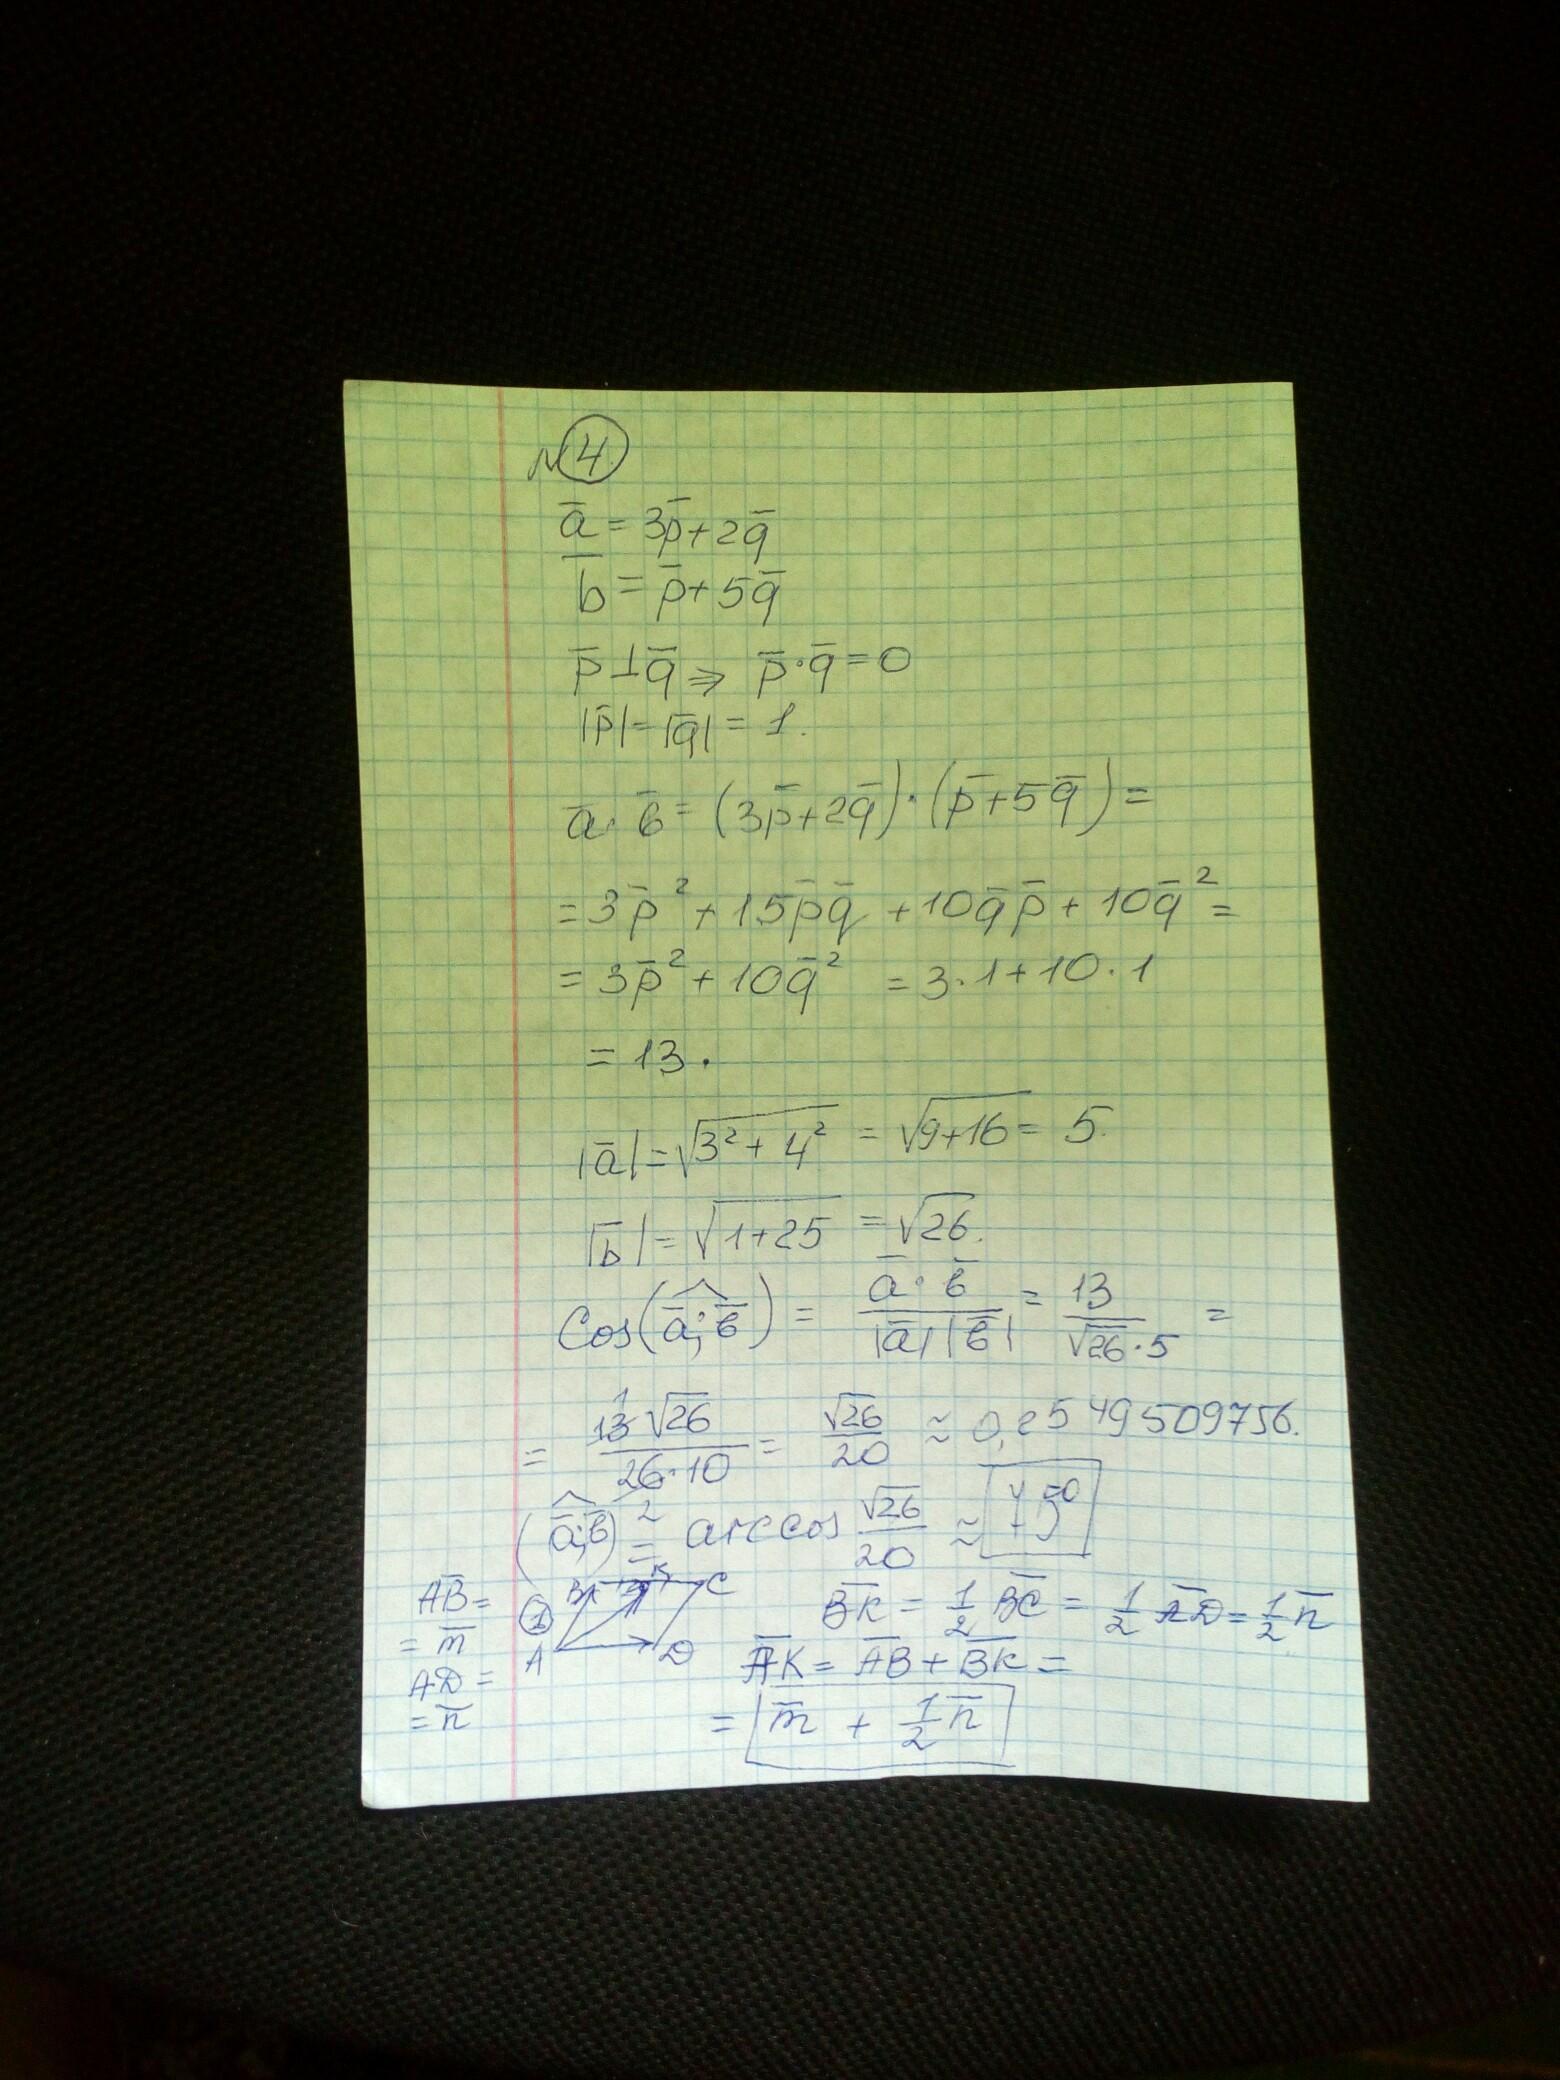 № 4
a̅ = 3p̅ + 2q̅
b̅ = p̅ + 5q̅
p̅ ⊥ q̅ ⇒ p̅ · q̅ = 0
|p̅| = |q̅| = 1.
a̅ · b̅ = (3p̅ + 2q̅) · (p̅ + 5q̅) =
= 3p̅² + 15p̅q̅ + 10q̅p̅ + 10q̅² =
= 3p̅² + 10q̅² = 3·1 + 10·1
= 13.
|a̅| = √(3² + 4²) = √(9+16) = 5.
|b̅| = √(1+25) = √26.
Cos(a̅; b̅) = (a̅ · b̅)/(|a̅| |b̅|) = 13/(√26 · 5) =
= 13√26/(26·10) = √26/20 ≈ 0,2549509756.
1
2
(a̅; b̅) = arccos √26/20 ≈ 75⁰
A̅B̅ =
= m̅
AD =
= n̅
1
B K C
A D
B̅K̅ = 1/2 B̅C̅ = 1/2 A̅D̅ = 1/2 n̅
A̅K̅ = A̅B̅ + B̅K̅ =
= m̅ + 1/2 n̅